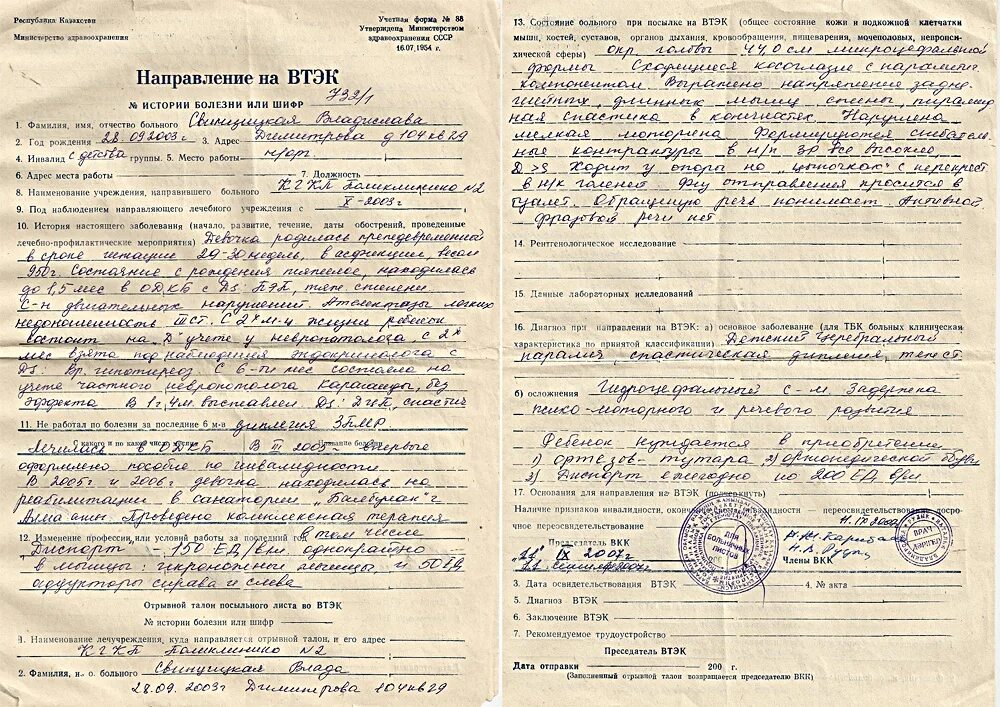 Республика Казахстан
Министерство здравоохранения
Учетная форма № 88
Утверждена Министерством
здравоохранения СССР
16.07.1954 г.
Направление на ВТЭК
№ ИСТОРИИ БОЛЕЗНИ ИЛИ ШИФР 732/1
1. Фамилия, имя, отчество больного Свиницицкая Владислава
2. Год рождения 28.09.2003г 3. Адрес Димитрова д 104 кв 29
4. Инвалид с детства группы. 5. Место работы н/орг.
6. Адрес места работы 7. Должность
8. Наименование учреждения, направившего больного КГКП Поликлиника №2
9. Под наблюдением направляющего лечебного учреждения с X-2003г
10. История настоящего заболевания (начало, развитие, течение, даты обострений, проведенные
лечебно-профилактические мероприятия) Девочка родилась преждевременно
в сроке гестации 29-30 недель, в асфиксии, весом
950г. Состояние с рождения тяжелое, находилась
до 1,5 мес в ОДКБ с Ds: ПЭП, тяж. степени.
С-м двигательных нарушений. Ателектазы легких
недоношенность III ст. С 2х м-ц жизни ребенок
состоит на "Д" учете у невропатолога, с 2х
мес взята под наблюдение эндокринолога с
Ds: Вр. гипотиреоз. С 6-ти мес состояла на
учете частного невропатолога Караганды, без
эффекта В 1г.4м. выставлен Ds: ДЦП, спастич
11. Не работал по болезни за последние 6 м-в диплегия ЗПМР
С какого и по какое число месяца название болезни
Лечилась в ОДКБ В III 2005г впервые
оформлено пособие по инвалидности
В 2005г и 2006г девочка находилась на
реабилитации в санатории "Балбулак" г
Алматы. Проведена комплексная терапия
12. Изменение профессии или условий работы за последний год в том числе
Диспорт - 150 ЕД/вм. однократно
в мышцы: икроножные мышцы и 50 ЕД
аддукторы справа и слева
Отрывной талон посыльного листа во ВТЭК
№ истории болезни или шифр
1. Наименование лечучреждения, куда направляется отрывной талон, и его адрес
КГКП Поликлиника №2
2. Фамилия, и., о. больного Влада
28.09.2003г Димитрова 104 кв 29
13. Состояние больного при посылке на ВТЭК (общее состояние кожи и подкожной клетчатки
мышц, костей, суставов, органов дыхания, кровообращения, пищеварения, мочеполовых, невропси-
хической сферы) окр. головы 44,0 см микроцефальной
формы Сходящиеся косоглазие с паралит.
компонентом Выражено напряжение задне-
шейных, длинных мышц спины, пирамид
ная спастика в конечностях. Нарушена
мелкая моторика Формируются сгибатель-
ные контрактуры в н/к
D>S Ходит у опоры на "цыпочках" с перекрест
в н/к голеней. Физ отправления просится в
туалет. Обращенную речь понимает. Активной
фразовой речи нет
14. Рентгенологическое исследование
15. Данные лабораторных исследований
16. Диагноз при направлении на ВТЭК: а) основное заболевание (для ТБК больных клиническая
характеристика по принятой классификации) Детский церебральный
паралич, спастическая диплегия, тяж ст
б) осложнения Гидроцефальный с-м. Задержка
психо-моторного и речевого развития
Ребенок нуждается в приобретении
1) ортезов-тутора 2) ортопедической обуви
3) Диспорт ежегодно по 200 ЕД в/м
17. Основания для направления на ВТЭК (подчеркнуть)
Наличие признаков инвалидности, окончание срока инвалидности переосвидетельствование, досроч-
ное переосвидетельствование
Председатель ВКК
Члены ВКК
IX 2007г
ДЛЯ БОЛЬНИЧНЫХ ЛИСТОВ
ВРАЧ
3. Дата освидетельствования ВТЭК 4. № акта
5. Диагноз ВТЭК
6. Заключение ВТЭК
7. Рекомендуемое трудоустройство
Преседатель ВТЭК
Дата отправки 200 г.
(Заполненный отрывной талон возвращается председателю ВКК)